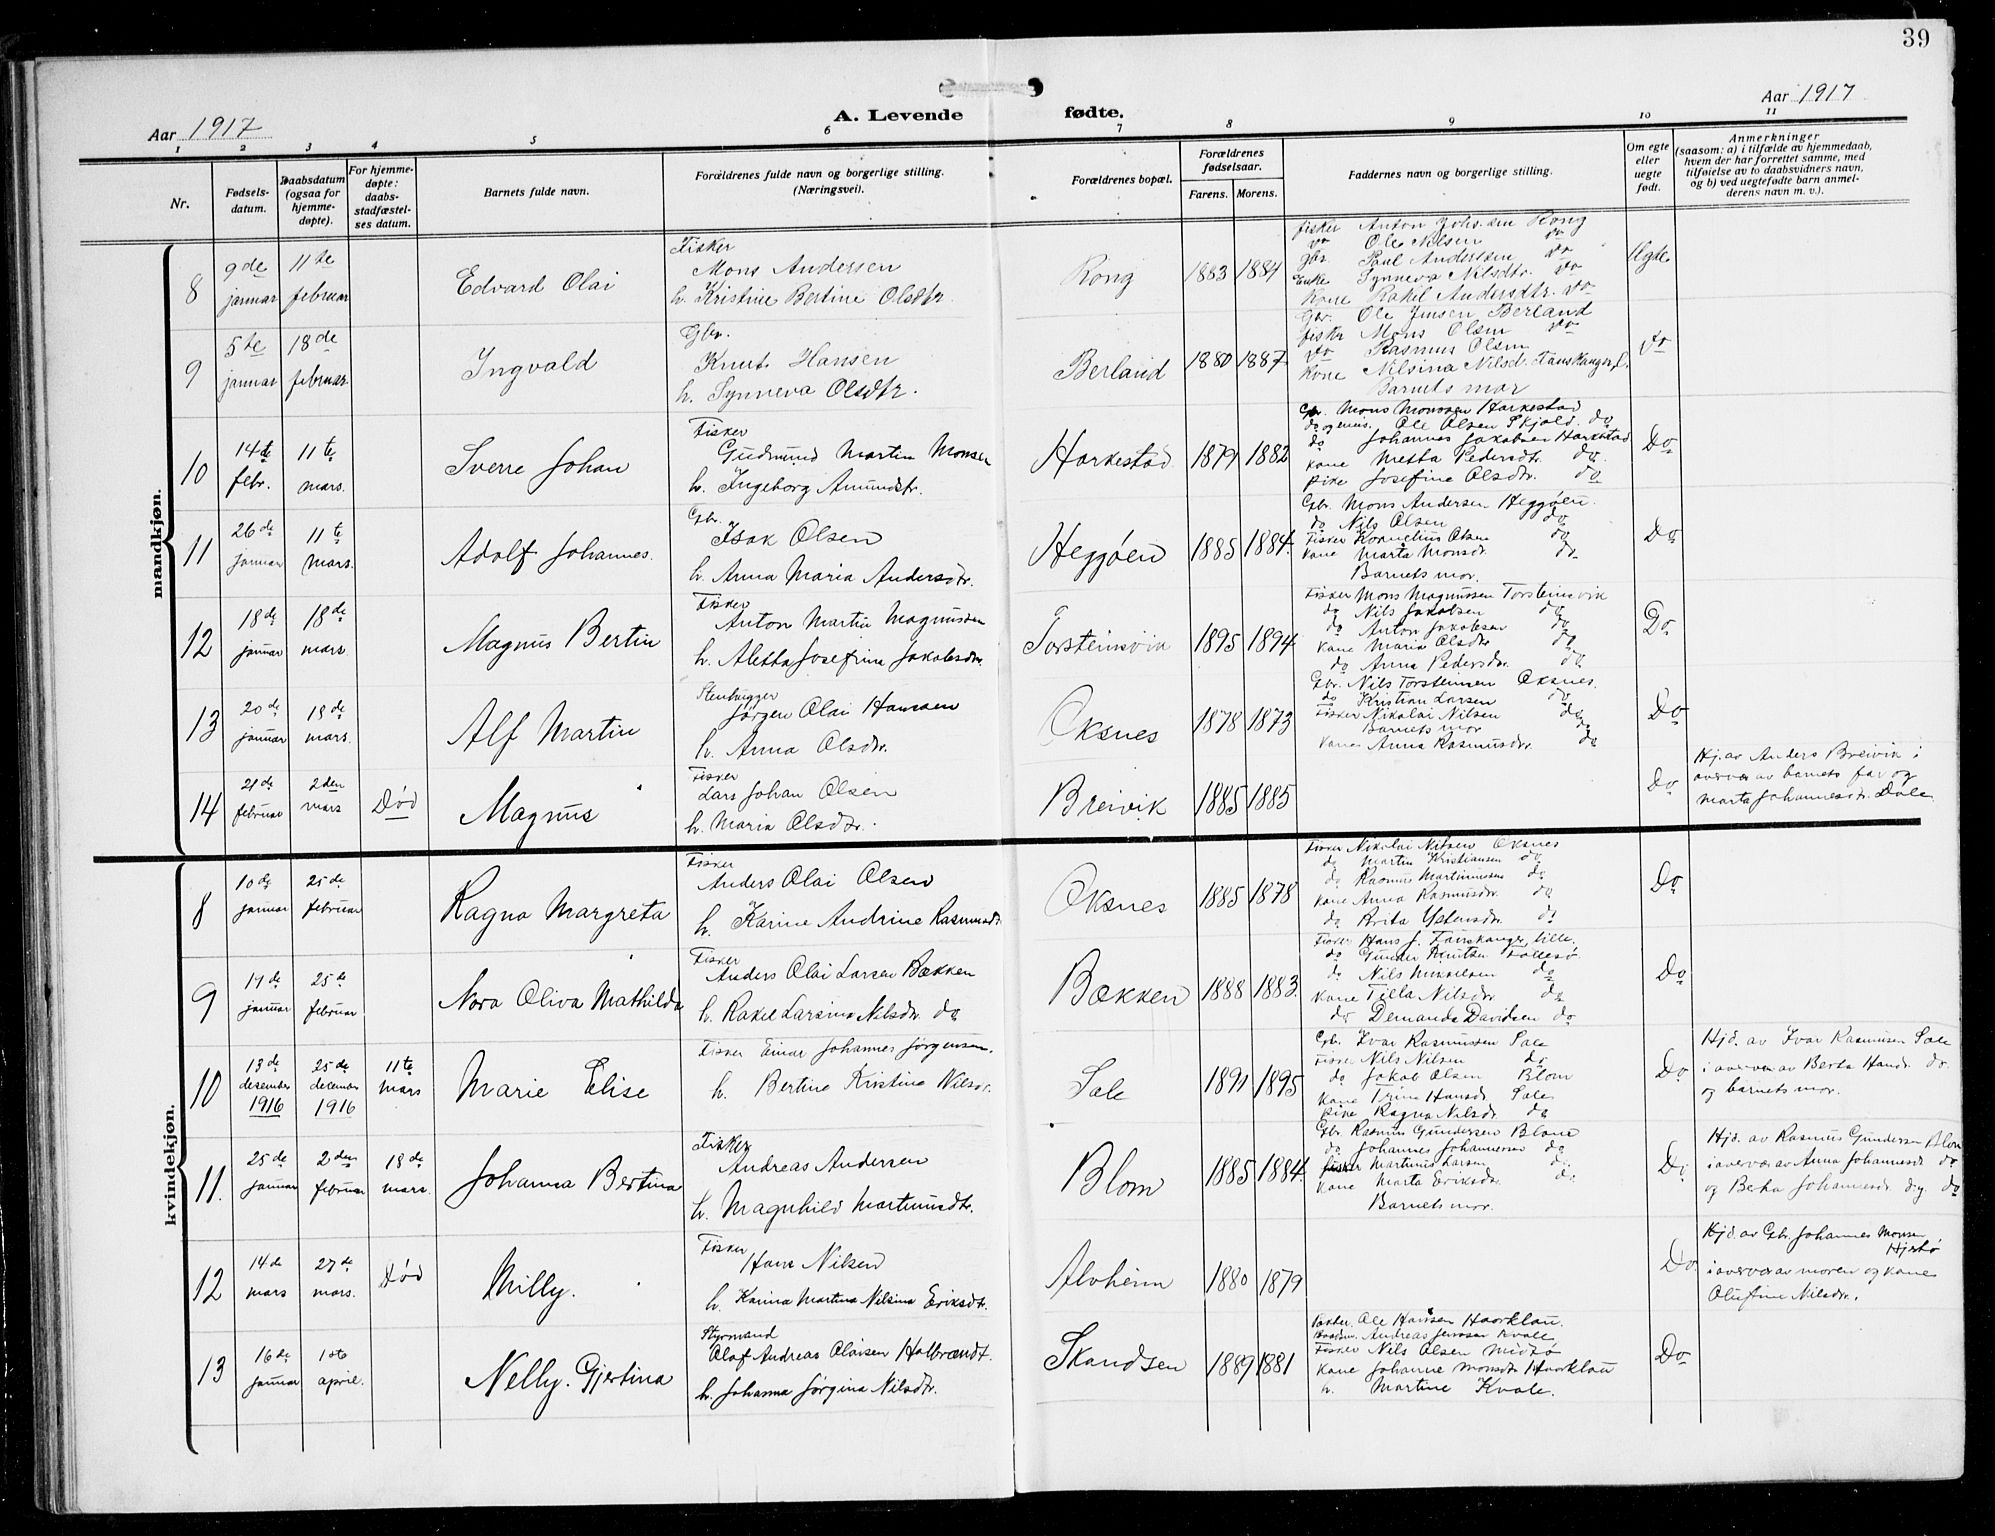 39
Aar 1917
A. Levende fødte.
Aar 1917
1 2 3 4 5 6 7 8 9 10 11
Nr.
Fødsels-
datum.
Daabsdatum
(ogsaa for
hjemme-
døpte).
For hjemme-
døpte:
daabs-
stadfæstel-
ses datum.
Barnets fulde navn.
Forældrenes fulde navn og borgerlige stilling.
(Næringsvei).
Forældrenes bopæl.
Forældrenes
fødselsaar.
Farens. Morens.
Faddernes navn og borgerlige stilling.
Om egte
eller
uegte
født.
Anmerkninger
(saasom: a) i tilfælde av hjemmedaab,
hvem der har forrettet samme, med
tilføielse av to daabsvidners navn,
og b) ved uegtefødte barn anmel-
derens navn m. v.).
mandkjøn.
8
9de
januar
11te
februar
Edvard Olai
Fisker
Mons Andersen
h. Kristine Bertine Olsdtr.
Rong
1883 1884
fisker Anton Johnsen Rong
do Ole Nilsen do
gbr. Paul Anderssen do
Enke Synneva Nilsdtr. do
Kone Rakel Andersdtr. do
Egte
9
5te
januar
18de
februar.
Ingvald
Gbr.
Knut Hansen
h. Synneva Olsdtr.
Berland
1880 1887
Gbr. Ole Jensen Berland
fisker Mons Olsen do
do Rasmus Olsen
Kone Nilsina Nilsd. Fanskanger, l.
Barnets mor
do
10
14de
febr.
11te
mars.
Sverre Johan
Fisker
Gudmund Martin Monsen
h. Ingeborg Amundsdtr.
Harkestad
1879 1882
Gbr. Mons Monssen Harkestad
Ole Olsen Skjold. do
do Johannes Jakobsen Harkestad
kone Metta Pedersdtr. do.
pike Josefine Olsdtr. do
Do
11
26de
januar
11te
mars.
Adolf Johannes.
Gbr.
Isak Olsen
h. Anna Maria Andersdtr.
Heggøen
1885 1884.
Gbr. Mons Andersen Heggøen.
do Nils Olsen do
Fisker Kornelius Olsen do
kone Marta Monsdr. do.
Barnets mor.
Do
12
18de
januar
18de
mars.
Magnus Bertin
Fisker
Anton Martin Magnussen
h. Aletta Josefina Jakobsdr.
Torsteinsvik
1895 1894
Fisker Mons Magnussen Torsteinsvik
do Nils Jakobsen do
do Anton Jakobsen do
kone Maria Olsdtr. do
do Anna Pedersdr. do
Do
13
20de
januar
18de
mars.
Alf Martin
Stenhugger
Jørgen Olai Hansen
h. Anna Olsdtr.
Oksnes
1878 1873
Gbr. Nils Torsteinsen Oksnes.
do Kristian Larsen do
Fisker Nikolai Nilsen do
Barnets mor do
kone Anna Rasmusdr. do
Do
14
21de
februar
2den
mars
Død
Magnus
Fisker
Lars Johan Olsen
h. Maria Olsdtr.
Breivik
1885 1885
Do
Hj. av Anders Breivik i
overvær av barnets far og
Marta Johannesdr. Dale
kvindekjøn.
8
10de
januar
25de
februar
Ragna Margreta
Fisker
Anders Olai Olsen
h. Karine Andrine Rasmusdtr.
Oksnes
1885 1878
Fisker Nikolai Nilsen Oksnes
do Martin Kristiansen do
do Rasmus Martinussen do
kone Anna Rasmusdr. do
do Brita Ystensdr. do
Do
9
14de
januar
25de
februar
Nora Oliva Mathilda
Fisker
Anders Olai Larsen Bækken
h. Rakel Larsina Nilsdr. do
Bækken
1888 1883.
Fisker Hans J. Fanskanger, lille.
do Gunder Knutsen
do Nils Mikkelsen do
kone Tilla Nilsdr. do
do Demanda Davidsen do
Do
10
13de
desember
1916
25de
decemer
1916
11te
mars
Marie Elise
Fisker Einar Johannes Jørgensen.
h. Bertine Kristina Nilsdr.
Sale
1891 1895
Gbr. Ivar Rasmussen Sale
Fisker Nils Nilsen do
do Jakob Olsen Blom
kone Trine Hansdr. Sale
pike Ragna Nilsdr. do
Do
Hjd. av Ivar Rasmussen Sale
i overvær av Berta Hansdr. do.
og barnets mor.
11.
25de
januar
2den
februar
18de
mars.
Johanna Bertina
Fisker
Andreas Andersen
h. Magnhild Martinusdtr.
Blom
1885 1884.
Gbr. Rasmus Gundersen Blom
do Johannes Johannessen do
fisker Martinus Larsen do.
kone Marta Eriksdr. do.
Barnets mor.
Do
Hjd. av Rasmus Gundersen Blom
i overvær av Anna Johannesdr. do
og Berta Johannesdr. d.y. do
12
14de
mars
27de
mars.
Død
Milly.
Fisker
Hans Nilsen
h. Karina Martina Nilsina Eriksdtr.
Alvheim
1880 1879
Do.
Hjd. av Gbr. Johannes Monsen
Hjertø
i overvær av moren og kone
Olufine Nilsdr.
13
16de
januar
1ste
april.
Nelly. Gjertina
Styrmand
Olaf Andreas Olaisen Halbrændt.
h. Johanna Jørgina Nilsdtr.
Skandsen
1889 1881
Ole Hansen Haarklau.
Andreas Jenssen Kvale
Fisker Nils Olsen Midtø
kone Johanne Monsdr. Haarklau
h. Martine Kvale.
Do